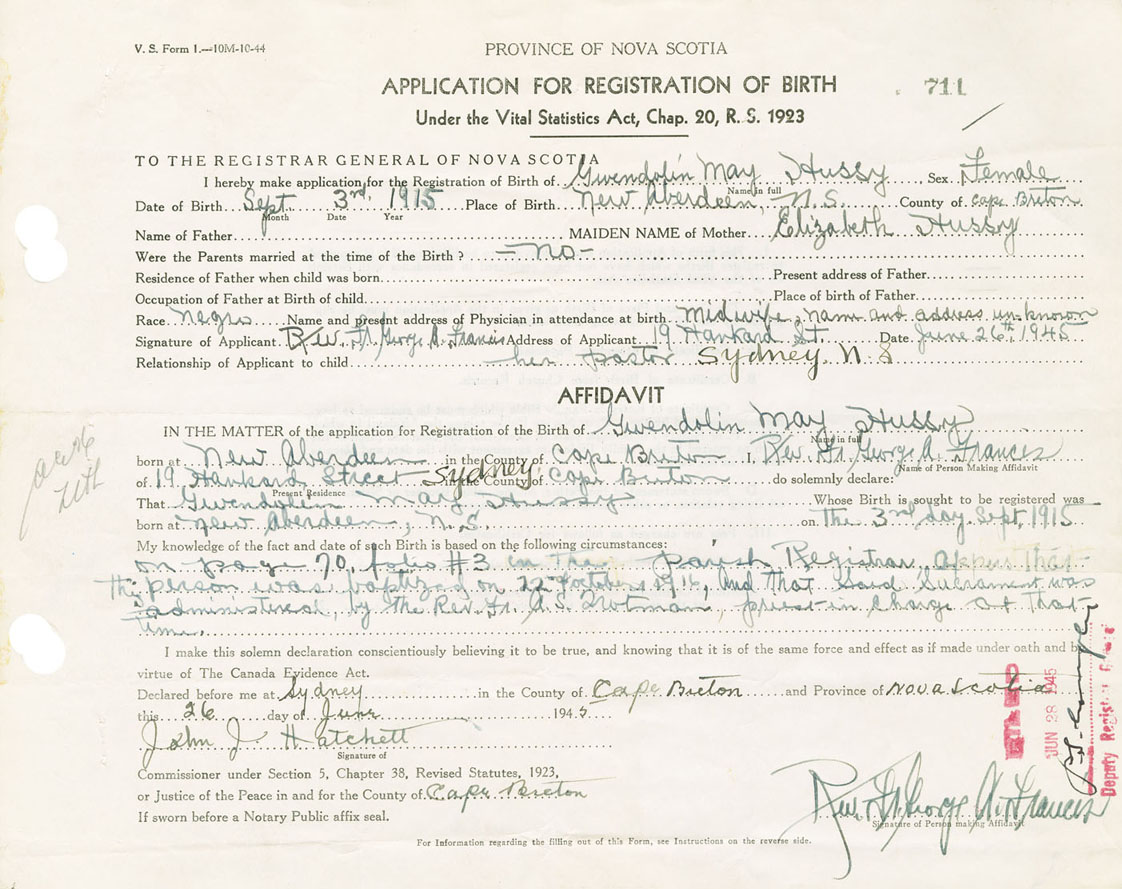 V. S. Form 1.—10M-10-44
PROVINCE OF NOVA SCOTIA
APPLICATION FOR REGISTRATION OF BIRTH
711
Under the Vital Statistics Act, Chap. 20, R. S. 1923
TO THE REGISTRAR GENERAL OF NOVA SCOTIA
I hereby make application for the Registration of Birth of Gwendolin May Hussy, Sex Female
Name in full
Date of Birth Sept 3rd, 1915 Place of Birth New Aberdeen, N.S. County of Cape Breton
Month Date Year
Name of Father MAIDEN NAME of Mother Elizabeth Hussy
Were the Parents married at the time of the Birth? -No-
Residence of Father when child was born Present address of Father
Occupation of Father at Birth of child Place of birth of Father
Race Negro Name and present address of Physician in attendance at birth Midwife, name and address unknown
Signature of Applicant Rev. Fr. George A. Francis Address of Applicant 19 Hankard St. Date June 26th, 1945
Relationship of Applicant to child her pastor Sydney N S
AFFIDAVIT
IN THE MATTER of the application for Registration of the Birth of Gwendolin May Hussy
Name in full
born at New Aberdeen in the County of Cape Breton I, Rev. Fr. George A. Francis
Name of Person Making Affidavit
of 19 Hankard Street Sydney in the County of Cape Breton do solemnly declare:
Present Residence
That Gwendolin May Hussy Whose Birth is sought to be registered was
born at New Aberdeen, N.S. on The 3rd day Sept, 1915
My knowledge of the fact and date of such Birth is based on the following circumstances:
on page 70, folio #3 in the parish Registrar, that
this person was baptized on 22nd October 1916, and that said Sacrament was
administered, by the Rev. Fr. A. priest-in charge at that
time.
I make this solemn declaration conscientiously believing it to be true, and knowing that it is of the same force and effect as if made under oath and by
virtue of The Canada Evidence Act.
Declared before me at Sydney in the County of Cape Breton and Province of Nova Scotia
this 26 day of June 1945
John J Hatchett
Signature of
Commissioner under Section 5, Chapter 38, Revised Statutes, 1923,
or Justice of the Peace in and for the County of Cape Breton
If sworn before a Notary Public affix seal.
Rev. Fr. George A. Francis
Signature of Person making Affidavit
For Information regarding the filling out of this Form, see Instructions on the reverse side.
JUN 28 1945
Deputy Registrar